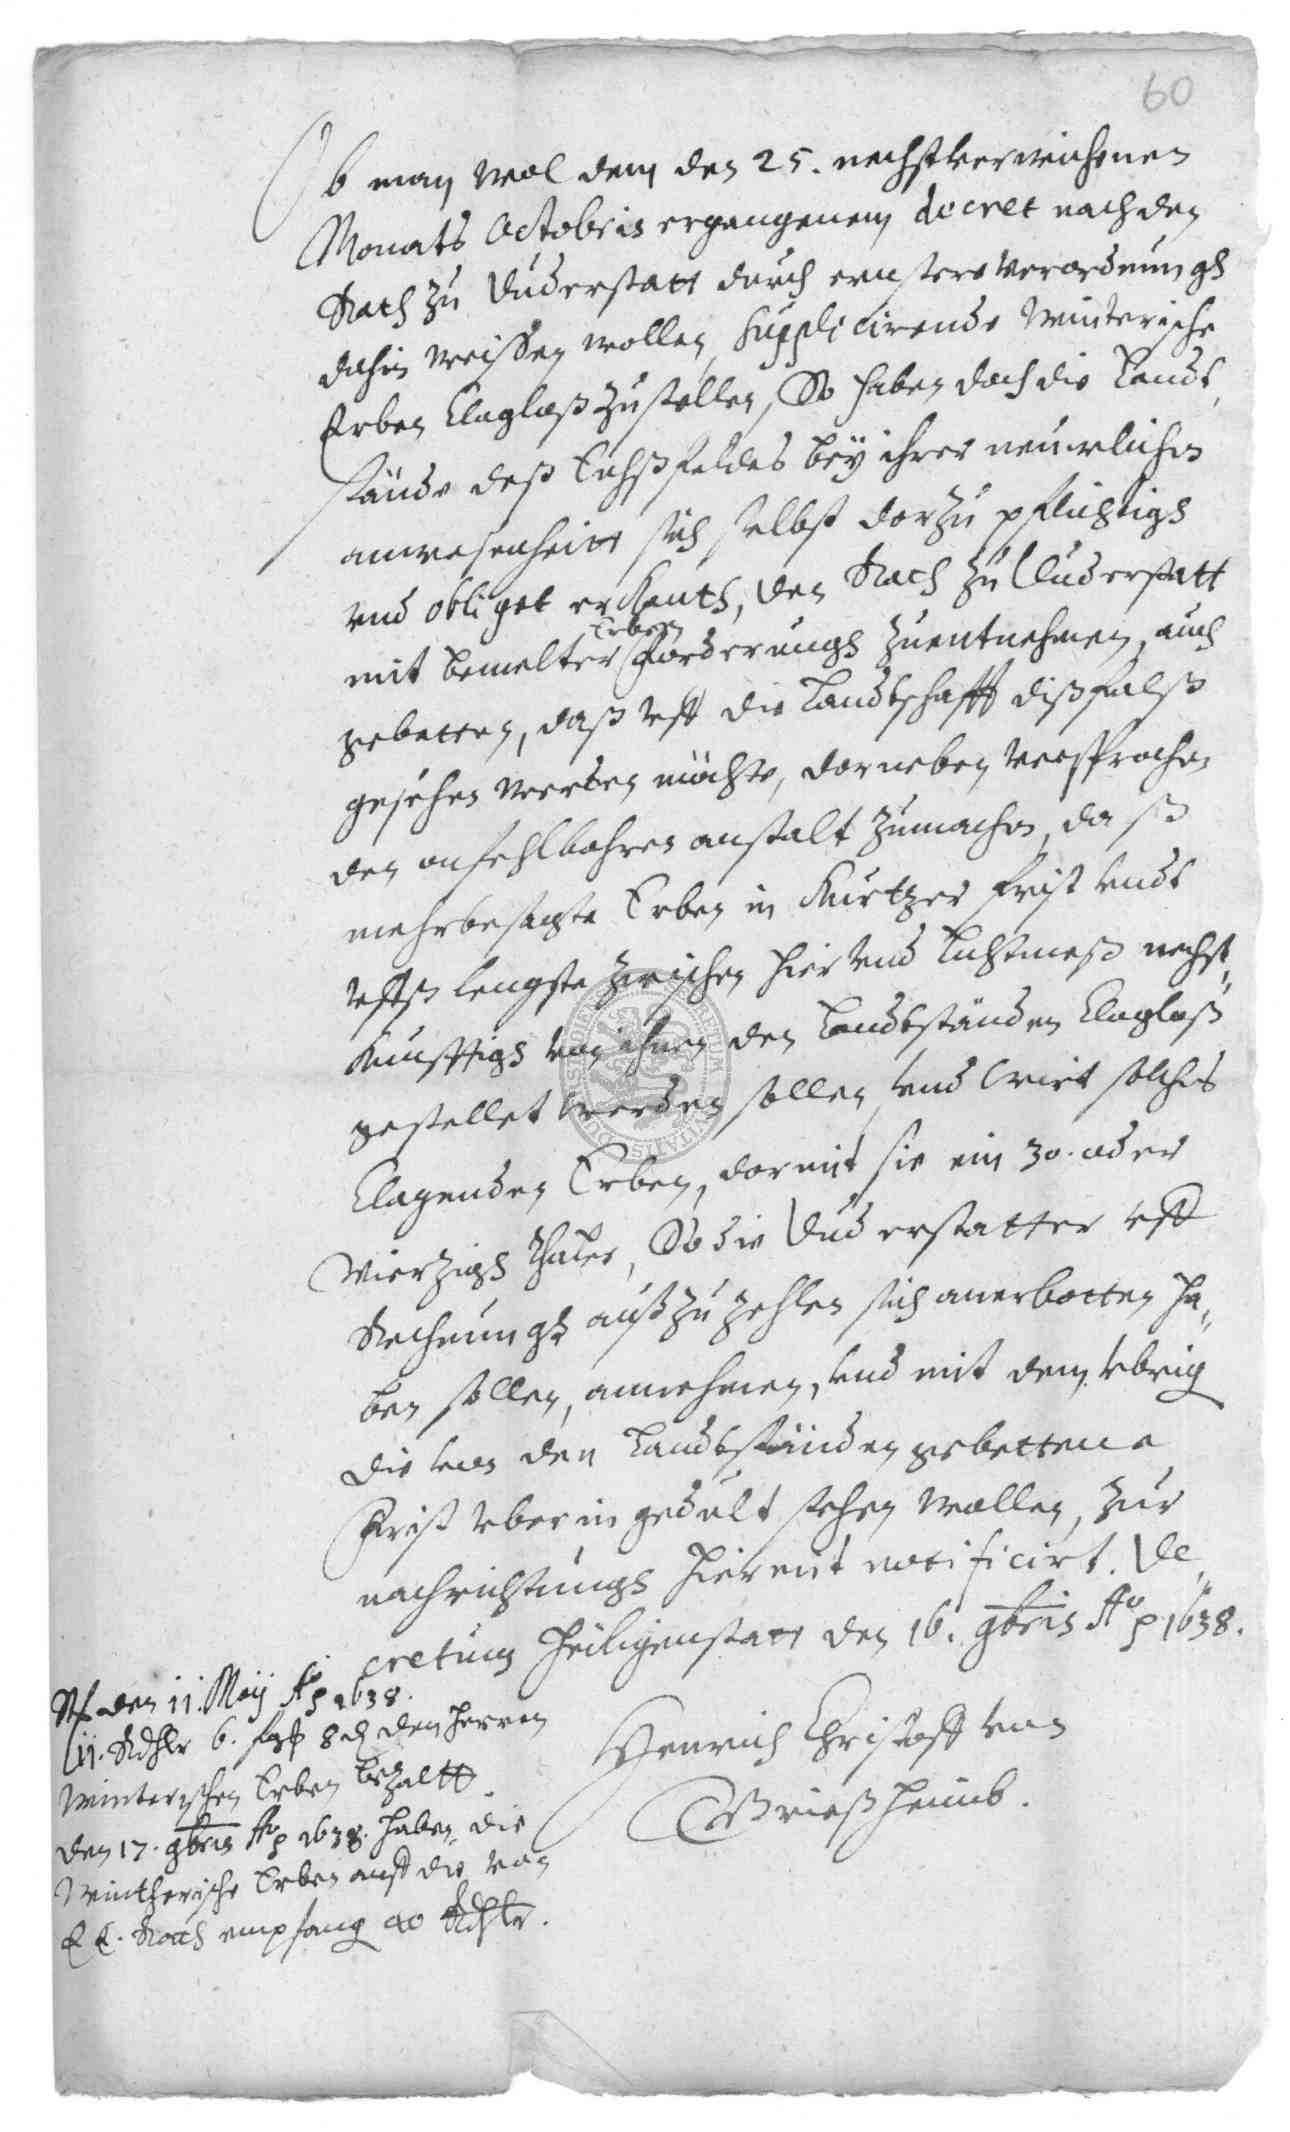 60
Ob man wol dem den 25. nechstverwichenen
Monats Octobris ergangenem decret nach den
Rath zu Duderstatt durch ernstere verordnungh
dahin weissen wollen, supplicirende Winterische
Erben klagloß zustellen, So haben doch die Landt,
stände deß Eichßfeldes bey ihrer neuwlichen
anwesenheitt sich selbst darzu pflichtigh
und obligat erkanth, den Rath zu Duderstatt
mit bemelter Erben Forderungh zuentnehmen, auch
gebetten, daß uff die Landtschafft dißfalß
gesehen werden möchte, darneben versprochen
den onfehlbahren anstalt zumachen, daß
mehrbesagte Erben in kurtzer frist undt
uffß lengste zwischen hier und Lichtmeß nechst,
kunfftigh von ihnen den Landtständen klagloß
gestellet werden sollen, und wirt solches
klagenden Erben, darmit sie ein 30. oder
vierzigh thaler, So die Duderstatter uff
Rechnungh außzuzehlen sich anerbotten ha,
ben sollen, annehmen, und mit dem ubrig
die von den Landtständen gebettene
Frist uber in gedult stehen wollen, zur
nachrichtungh hiermit notificirt. De,
cretum Heiligenstatt den 16. 9bris Ao p 1638.
Henrich Christoff von
Grießheimb.
den 11. Maij Ao p 1638.
11. Rthlr 6. 8 den Herren
Winterschen Erben bezaltt
den 17. 9bris Ao p 1638. haben die
Wintherische Erben auff die von
E E. Rath empfang 40 Rthlr.
SIGILLUM CIVITATIS